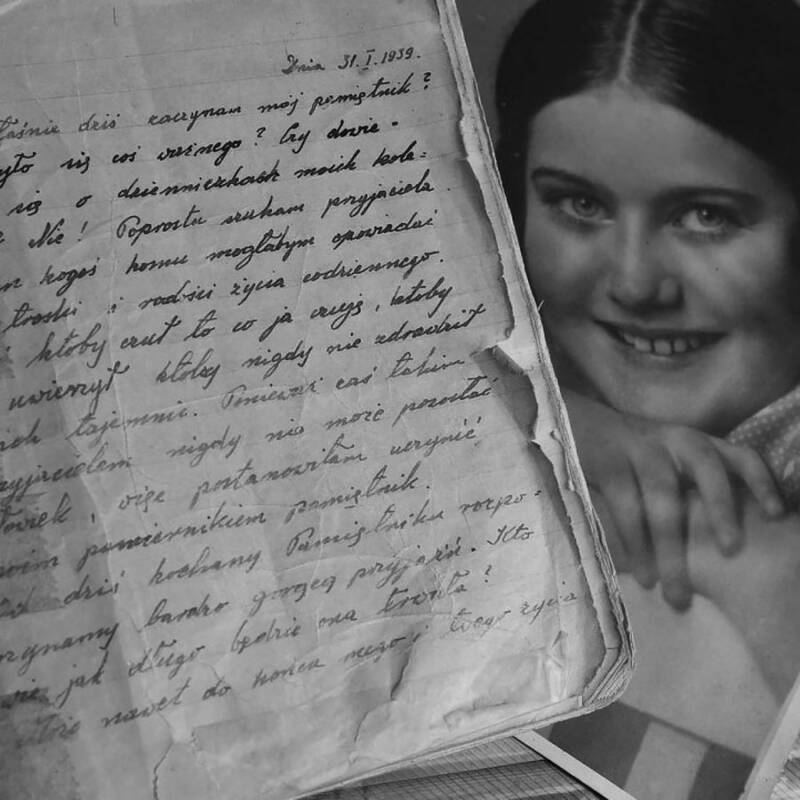 Dnia 31.I.1939.
łaśnie dziś zaczynam mój pamiętnik?
yło się coś ważnego? Czy dowie-
się o dzienniczkach moich kole-
Nie! Poprostu szukam przyjaciela.
kogoś komu mogłabym opowiadać
troski i radości życia codziennego.
ktoby czuł to co ja czuję, ktoby
uwierzył ktoby nigdy nie zdradził
ich tajemnic. Ponieważ zaś takim
zyjacielem nigdy nie może pozostać
łowiek, więc postanowiłam uczynić
oim powiernikiem pamiętnik.
dziś kochany Pamiętniku rozpo-
czynamy bardzo gorącą przyjaźń. Kto
wie jak długo będzie ona trwała?
Może nawet do końca mego i twego życia